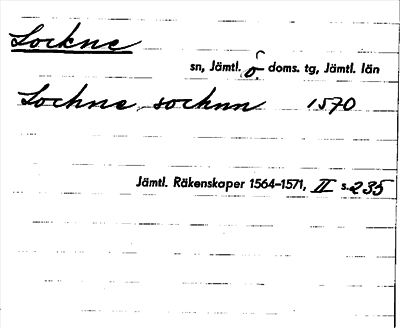 Lockne
sn, Jämtl. ö. doms. tg, Jämtl. län
Lochne sochnn 1570
Jämtl. Räkenskaper 1564–1571, II s. 235